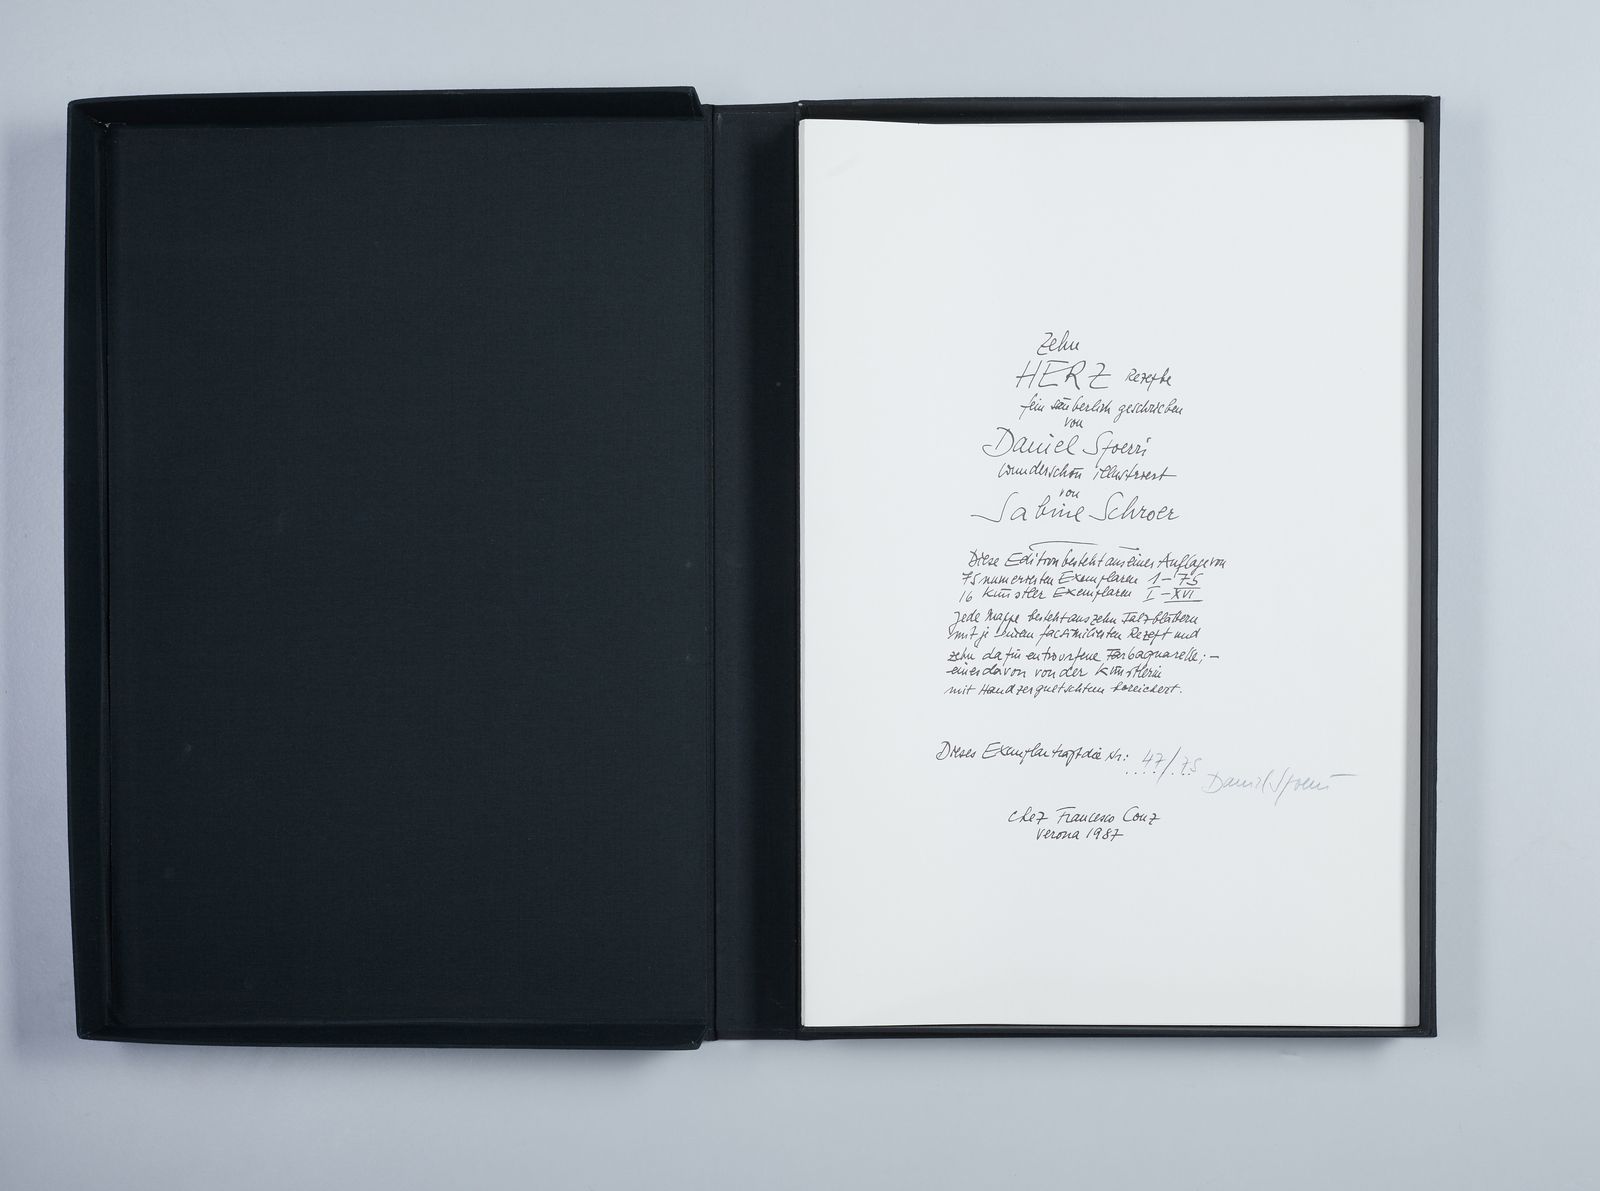 Zehn
HERZ Rezepte
fein säuberlich geschrieben
von
Daniel Spoerri
wunderschön illustriert
von
Sabine Schroer
Diese Edition besteht aus einer Auflage von
75 numerierten Exemplaren 1-75
16 Künstler Exemplaren I-XVI
Jede Mappe besteht aus zehn Falzblättern
mit je einem facsimilierten Rezept und
zehn dafür entworfene Farbaquarelle; -
eines davon von der Künstlerin
mit Handzerquetschtem bereichert.
Dieses Exemplar trägt die Nr: 47/75
Daniel Spoerri
chez Francesco Conz
Verona 1987